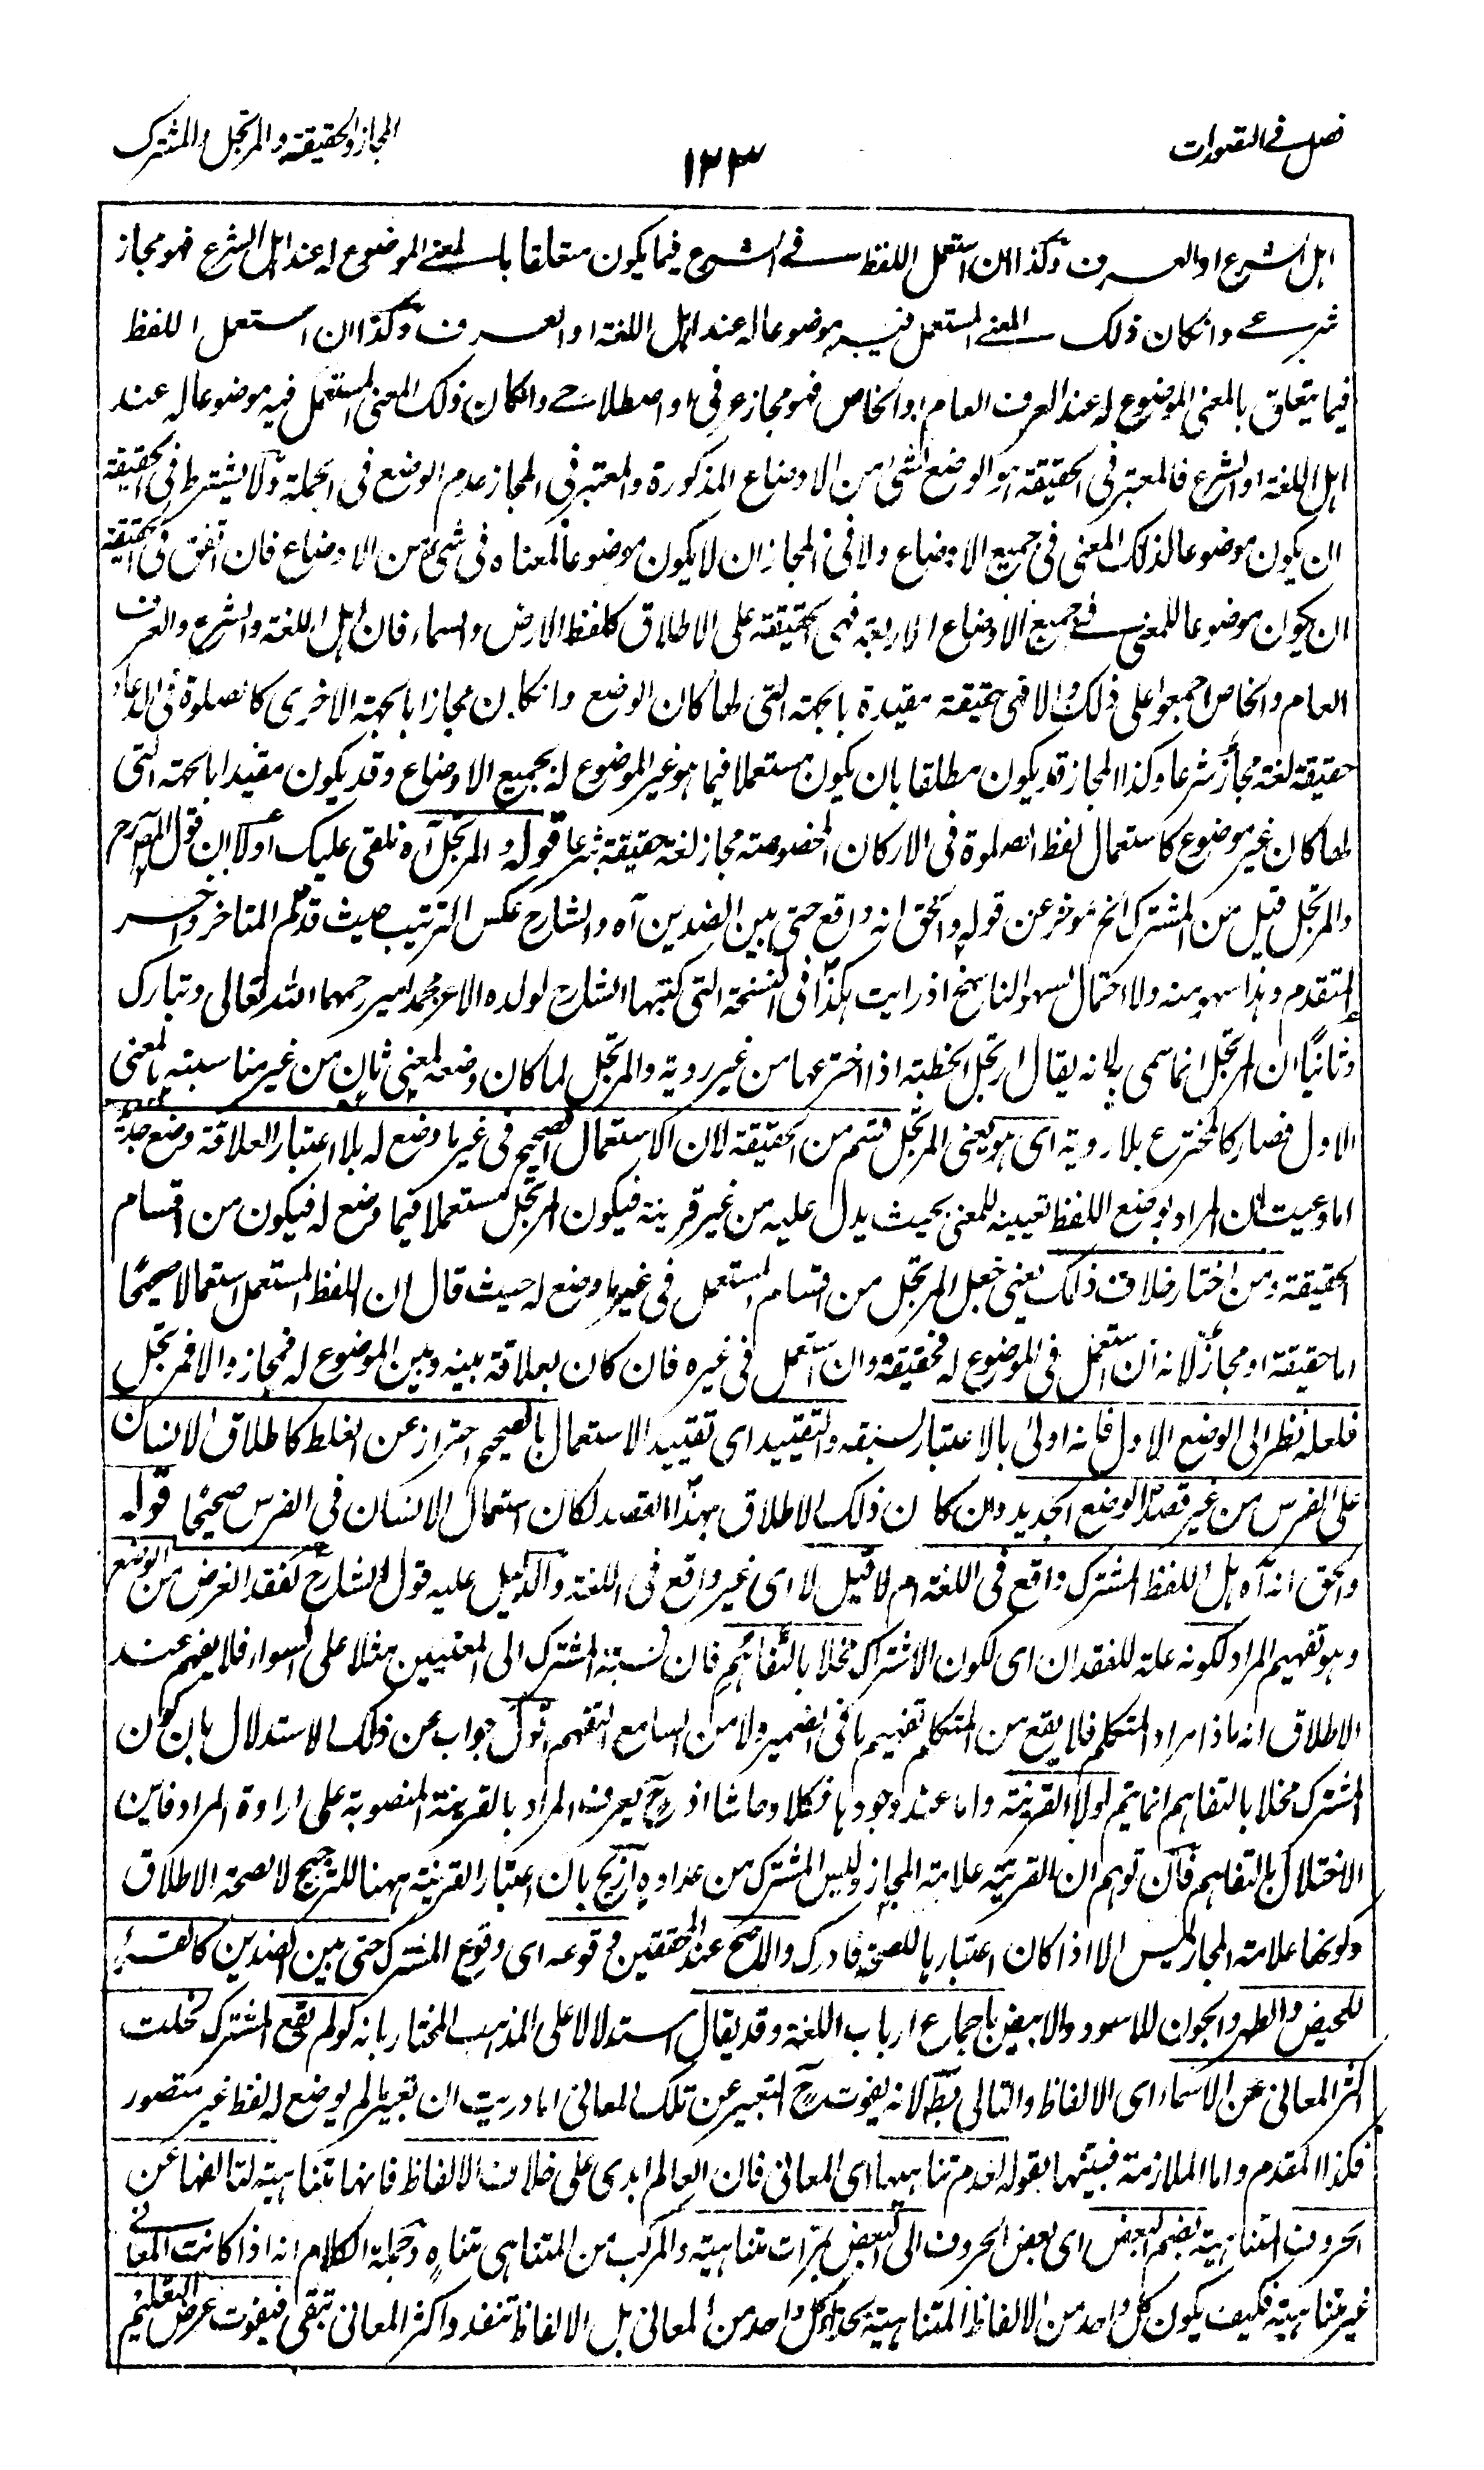 فصل فى التصورات
١٢٣
المجاز والحقيقة والمرتجل والمشترك
اهل الشرع او العرف وكذا ان استعمل اللفظ فى الشرع فيما يكون متعلقا بالمعنى الموضوع له عند اهل الشرع فهو مجاز
شرعى وان كان ذلك المعنى المستعمل فيه موضوعا له عند اهل اللغة او العرف وكذا ان استعمل اللفظ
فيما يتعلق بالمعنى الموضوع له عند العرف العام او الخاص فهو مجاز عرفى او اصطلاحى وان كان ذلك المعنى المستعمل فيه موضوعا له عند
اهل اللغة او الشرع فالمعتبر فى الحقيقة هو الوضع لشئ من الاوضاع المذكورة والمعتبر فى المجاز عدم الوضع فى الجملة ولا يشترط فى الحقيقة
ان يكون موضوعا لذلك المعنى فى جميع الاوضاع ولا فى المجاز ان لا يكون موضوعا لمعناه فى شئ من الاوضاع فان اتفق فى الحقيقة
ان يكون موضوعا للمعنى فى جميع الاوضاع الاربعة فهى الحقيقة على الاطلاق كلفظ الارض والسماء فان اهل اللغة والشرع والعرف
العام والخاص اجمعوا على ذلك والا فهى حقيقة مقيدة بالجهة التى لها كان الوضع وان كان مجازا بالجهة الاخرى كالصلوة فى الدعاء
حقيقة لغة مجاز شرعا وكذا المجاز قد يكون مطلقا بان يكون مستعملا فيما هو غير الموضوع له بجميع الاوضاع وقد يكون مقيدا بالجهة التى
لها كان غير موضوع كاستعمال لفظ الصلوة فى الاركان المخصوصة مجاز لغة حقيقة شرعا قوله والمرتجل آه نلقى عليك اولا ان قول المصرح
والمرتجل قيل من المشترك الخ مؤخر عن قوله والحق انه واقع حتى بين الضدين آه والشارح عكس الترتيب حيث قدم المتاخر واخر
المتقدم وهذا سهو منه ولا احتمال لسهو الناسخ اذ رايت هكذا فى النسخة التى كتبها الشارح لولده الاعز محمد اسير رحمهما الله تعالى وتبارك
وثانيا ان المرتجل انما سمى به لانه يقال ارتجل الخطبة اذا اخترعها من غير روية والمرتجل لما كان وضعه لمعنى ثان من غير مناسبة بالمعنى
الاول فصار كالمخترع بلا روية اى هو يعنى المرتجل قسم من الحقيقة لان الاستعمال الصحيح فى غير ما وضع له بلا اعتبار العلاقة وضع جديد
اما وعيت ان المراد بوضع اللفظ تعيينه للمعنى بحيث يدل عليه من غير قرينة فيكون المرتجل مستعملا فيما وضع له فيكون من اقسام
الحقيقة ومن اختار خلاف ذلك يعنى جعل المرتجل من اقسام المستعمل فى غير ما وضع له حيث قال ان اللفظ المستعمل استعمالا صحيحا
اما حقيقة او مجاز لانه ان استعمل فى الموضوع له فحقيقة وان استعمل فى غيره فان كان بعلاقة بينه وبين الموضوع له فمجاز والا فمرتجل
فلعله نظر الى الوضع الاول فانه اولى بالاعتبار لسبقه والتقييد اى تقييد الاستعمال بالصحيح احتراز عن الغلط كاطلاق الانسان
على الفرس من غير قصد الوضع الجديد وان كان ذلك الاطلاق بهذا القصد لكان استعمال الانسان فى الفرس صحيحا قوله
والحق انه آه هل اللفظ المشترك واقع فى اللغة ام لا قيل لا اى غير واقع فى اللغة والدليل عليه قول الشارح لفقد الغرض من الوضع
وهو تفهيم المراد لكونه علة للفقدان اى لكون الاشتراك مخلا بالتفاهم فان نسبة المشترك الى المعنيين مثلا على السواء فلا يفهم عند
الاطلاق انه ماذا مراد المتكلم فلا يقع من المتكلم تفهيم ما فى الضمير ولا من السامع التفهم اقول جواب عن ذلك الاستدلال بان كون
المشترك مخلا بالتفاهم انما يتم لولا القرينة واما عند وجودها فكلا وحاشا اذ ح يعرف المراد بالقرينة المنصوبة على ارادة المراد فاين
الاختلال بالتفاهم فان توهم ان القرينة علامة المجاز وليس المشترك من عداده ازيح بان اعتبار القرينة ههنا للترجيح لا لصحة الاطلاق
وكونها علامة المجاز ليس الا اذا كان اعتبارها للصحة فادرك والاصح عند المحققين وقوعه اى وقوع المشترك حتى بين الضدين كالقرء
للحيض والطهر والجون للاسود والابيض باجماع ارباب اللغة وقد يقال استدلالا على المذهب المختار بانه لو لم يقع المشترك لخلت
اكثر المعانى عن الاسماء اى الالفاظ والتالى بط لانه يفوت ح التعبير عن تلك المعانى اما دريت ان تعبير ما لم يوضع له لفظ غير متصور
فكذا المقدم واما الملازمة فبينها بقوله لعدم تناهيها اى المعانى فان العالم ابدى على خلاف الالفاظ فانها متناهية لتالفها عن
الحروف المتناهية بضم البعض اى بعض الحروف الى البعض بمرات متناهية والمركب من المتناهى متناه وجملة الكلام انه اذا كانت المعانى
غير متناهية فكيف يكون كل واحد من الالفاظ المتناهية بحذاء كل واحد من المعانى بل الالفاظ تنفد واكثر المعانى تبقى فيفوت غرض التعليم